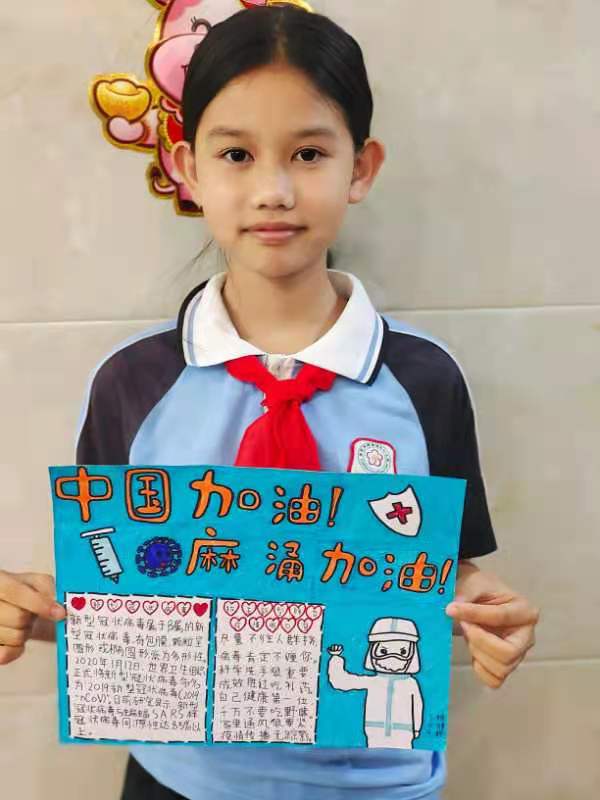 中国加油!
麻涌加油!
新型冠状病毒属于β属的新
型冠状病毒,有包膜,颗粒呈
圆形或椭圆形,常为多形性,
2020年1月12日,世界卫生组织
正式将新型冠状病毒命名
为2019新型冠状病毒(2019
-nCoV),目前研究显示,新型
冠状病毒与蝙蝠SARS样
冠状病毒同源性达85%以
上。
尽量不往人群挤,
病毒肯定不睬你。
科学洗手最重要,
成效胜过吃补药。
自己健康第一位,
千万不要吃野味。